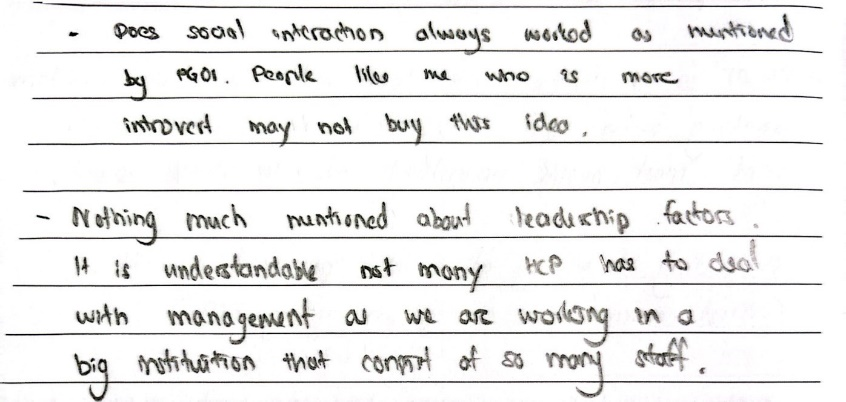 - Does social interaction always worked as mentioned
by PG01. People like me who is more
introvert may not buy this idea.
- Nothing much mentioned about leadership factors.
It is understandable not many HCP has to deal
with management as we are working in a
big instituition that consist of so many staff.